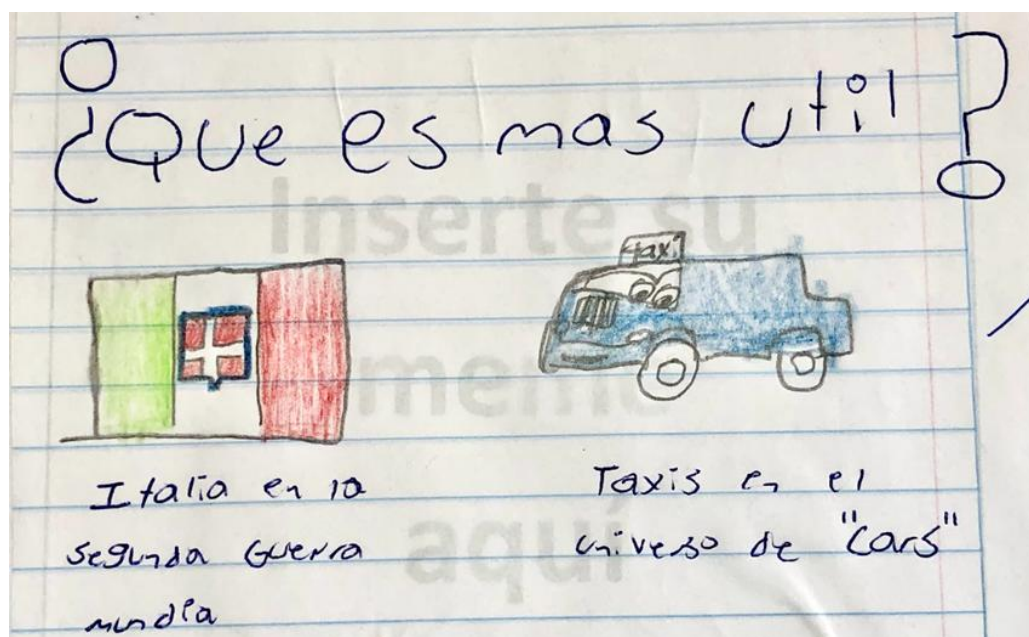 ¿Que es mas util?
Inserte su
taxi
meme
Italia en la
segunda Guerra
mundia
Taxis en el
universo de "Cars"
aquí